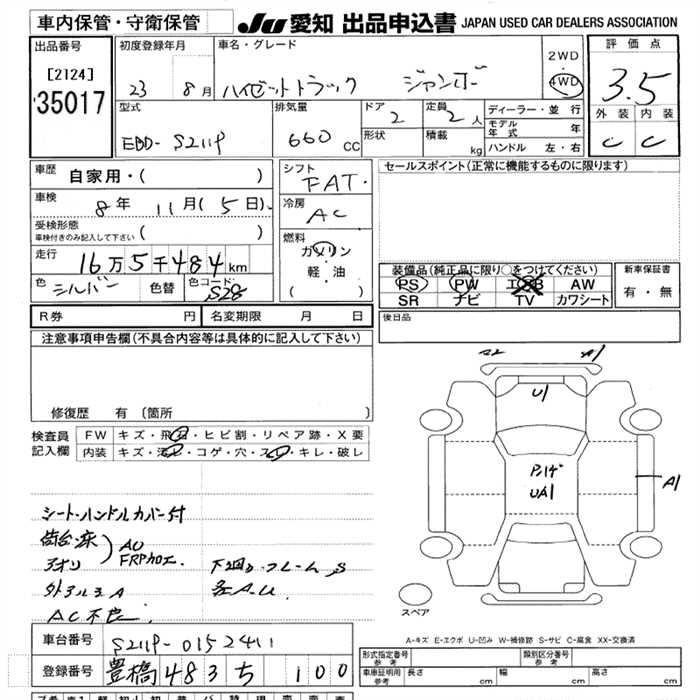 車内保管・守衛保管
JU 愛知 出品申込書 JAPAN USED CAR DEALERS ASSOCIATION
出品番号
[2124]
35017
初度登録年月
23 8月
車名・グレード
ハイゼットトラック ジャンボ
2WD
・
4WD
評価点
3.5
外装 内装
C C
型式
EBD-S211P
排気量
660 CC
ドア
2
形状
定員
2人
積載
kg
ディーラー・並行
モデル年式 年
ハンドル 左・右
車歴
自家用・( )
車検
8年 11月(5日)
受検形態
車検付きのみ記入して下さい ( )
走行
16万5千484km
色 シルバー 色替 色コード S28
シフト
FAT・
冷房
AC
燃料
ガソリン
軽・油
( )
セールスポイント(正常に機能するものに限ります)
装備品(純正品に限り○をつけてください)
PS PW エアB AW
SR ナビ TV カワシート
新車保証書
有・無
R券 円 名変期限 月 日
後日品
注意事項申告欄(不具合内容等は具体的に記入して下さい)
修復歴 有 〔箇所 〕
検査員記入欄
FW キズ・飛石・ヒビ割・リペア跡・X要
内装 キズ・汚レ・コゲ・穴・スレ・キレ・破レ
シート・ハンドルカバー付
荷台・床
アオリ
AU
FRP加工
外アルミA
AC不良
下回り・フレームS
各A.U
A1
U1
UA1
A1
スペア
A-キズ E-エクボ U-凹み W-補修跡 S-サビ C-腐食 XX-交換済
車台番号 S211P-0152411
登録番号 豊橋 483 ち 100
形式指定番号
参考
類別区分番号
参考
車庫証明用
参考
長さ cm 幅 cm 高さ cm